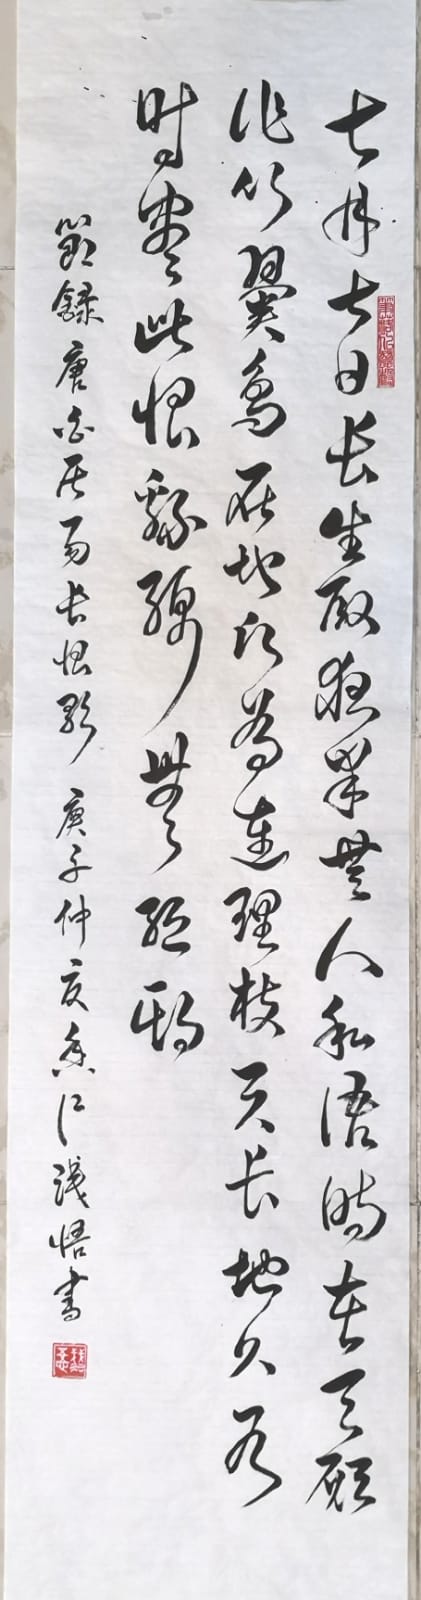 七月七日长生殿夜半無人私语時在天願
作比翼鳥在地願为連理枝天长地久有
时盡此恨綿綿無絕期
節録唐白居易长恨歌 庚子仲夏 浅悟書